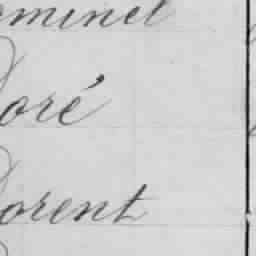 ominel
Doré
Dorent